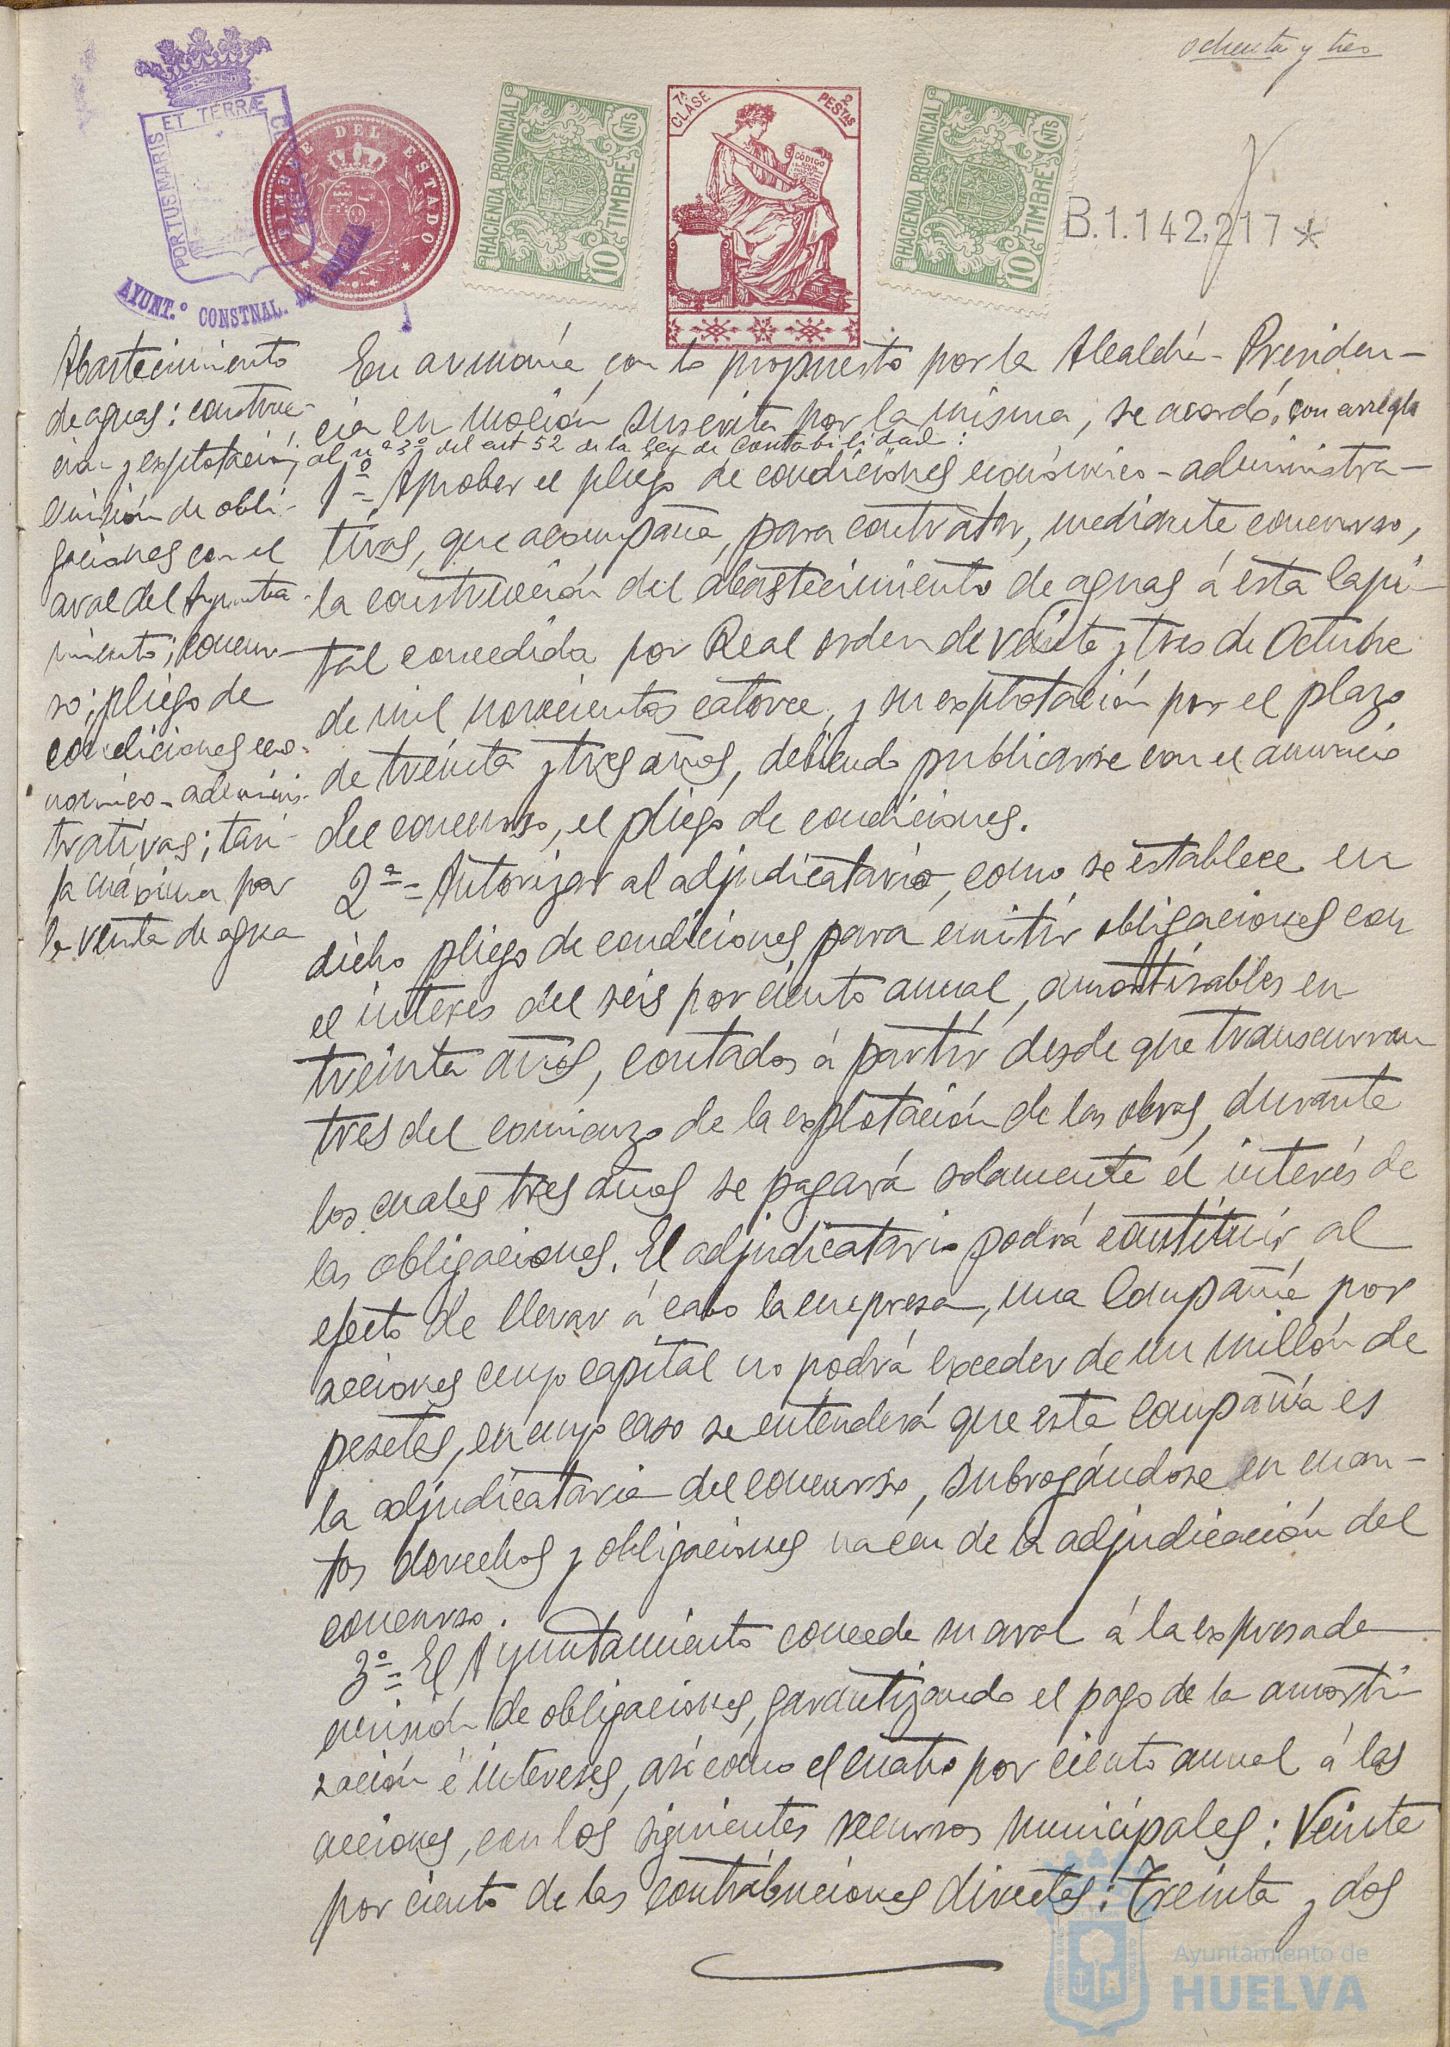 ochenta y tres
PORTUS MARIS ET TERRÆ CUSTODIA
AYUNT.º CONSTNAL. DE HUELVA
TIMBRE DEL ESTADO
HACIENDA PROVINCIAL
10 CNTS
TIMBRE
7ª CLASE
2 PESTAS
CÓDIGO
HACIENDA PROVINCIAL
10 CNTS
TIMBRE
B.1.142,217*
Abastecimiento
de aguas: construc-
ción y explotación;
emisión de obli-
gaciones con el
aval del Ayunta-
miento; concur-
so; pliego de
condiciones eco-
nómico-adminis-
trativas; tari-
fa máxima por
la venta de agua
En armonía con lo propuesto por la Alcaldía-Presiden-
cia en moción suscrita por la misma, se acordó, con arreglo
al nº 3º del art 52 de la Ley de Contabilidad:
1º= Aprobar el pliego de condiciones económico-administra-
tivas, que acompaña, para contratar, mediante concurso,
la construcción del abastecimiento de aguas á esta Capi-
tal concedida por Real orden de veinte y tres de Octubre
de mil novecientos catorce, y su explotación por el plazo
de treinta y tres años, debiendo publicarse con el anuncio
del concurso, el pliego de condiciones.
2º= Autorizar al adjudicatario, como se establece en
dicho pliego de condiciones para emitir obligaciones con
el interés del seis por ciento anual, amortizables en
treinta años, contados á partir desde que transcurran
tres del comienzo de la explotación de las obras, durante
los cuales tres años se pagará solamente el interés de
las obligaciones. El adjudicatario podrá constituir al
efecto de llevar á cabo la empresa, una Compañía por
acciones cuyo capital no podrá exceder de un millón de
pesetas, en cuyo caso se entenderá que esta Compañía es
la adjudicataria del concurso, subrogándose en cuan-
tos derechos y obligaciones nacen de la adjudicación del
concurso.
3º= El Ayuntamiento concede su aval á la expresada
emisión de obligaciones, garantizando el pago de la amorti-
zación é intereses, así como el cuatro por ciento anual á las
acciones, con los siguientes recursos municipales: Veinte
por ciento de las contribuciones directas: Treinta y dos
Ayuntamiento de
HUELVA